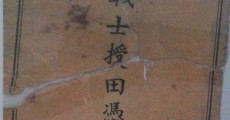 戰士授田憑